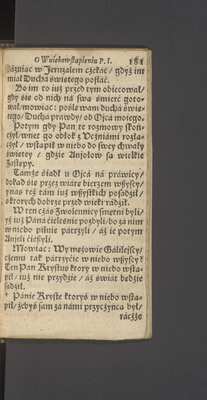 O Wniebowstąpieniu P. I. 181
kazuiąc w Jeruzalem czekać / gdyż im
miał Ducha świętego posłać.
Bo im to iuż przed tym obiecował /
gdy się od nich na swą śmierć goto-
wał / mowiąc: poślę wam ducha świę-
tego / Ducha prawdy od Ojcá moiego.
Potym gdy Pan te rozmowy skoń-
czył / wnet go obłok z Uczniámi rozłą-
czył / wstąpił w niebo do swey chwały
świętey / gdzie Anjołow są wielkie
Zastępy.
Tamże śiadł u Ojcá na práwicy /
dokąd się przez wiárę bierzem wszyscy /
yna też nám iuż wszystkich posádził /
o ktorych dobrze przed wieki rádził.
W ten czás Zwolennicy smętni byli /
yż iuż Páná ćielesnie pozbyli / bo zá nim
w niebo pilnie patrzyli / áż ie potym
Anjeli ćieszyli.
Mowiąc: Wy mężowie Gálileyscy /
czemu ták pátrzyćie w niebo wszyscy?
Ten Pan Krystus ktory w niebo wstą-
pił / iuż nie przydzie / áż świát będzie
sądził.
† Pánie Kryste ktoryś w niebo wstą-
pił / żebyś sam zá námi przyczyńcą był /
ráczże